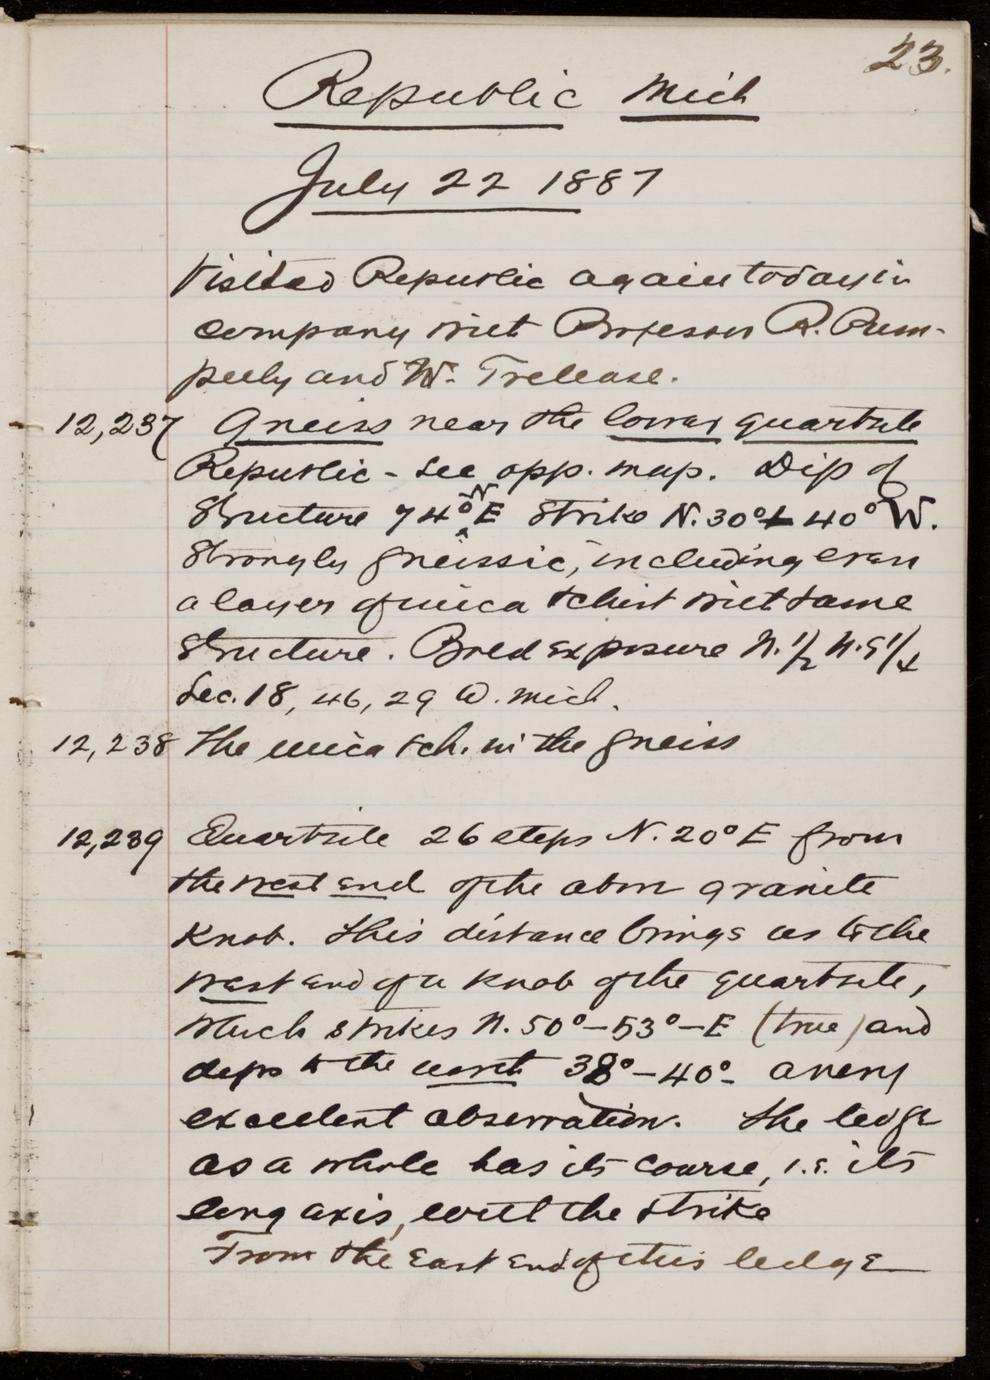 23.
Republic Mich
July 22 1887
Visited Republic again today in
company with Professor R. Pum-
pelly and W. Trelease.
12,237 Gneiss near the lower quartzite
Republic - See opp. map. Dip of
Structure 74° N E Strike N. 30° + 40° W.
Strongly gneissic, including even
a layer of mica schist with same
structure. Bold exposure N. 1/2 N.E 1/4
Sec. 18, 46, 29 W. Mich.
12,238 The mica sch. in the gneiss
12,239 Quartzite 26 steps N. 20° E from
the west end of the above granite
Knob. This distance brings us to the
west end of a Knob of the quartzite,
which strikes N. 50° - 53° - E (true) and
dips to the north 38° - 40° - a very
excellent observation. The ledge
as a whole has its course, i.e. its
long axis, with the strike
From the East end of this ledge